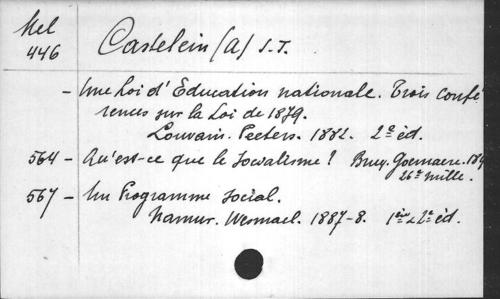 Mel
446
Castelein (A) S.T.
- Une Loi d'Education nationale. Trois confé
rences sur la Loi de 1879.
Louvain. Peeters. 1882. 2e éd.
564 - Qu'est-ce que le Socialisme? Brux. Goemaere. 189
26e mille.
567 - Un Programme social.
Namur. Wesmael. 1887-8. 1ère & 2e éd.